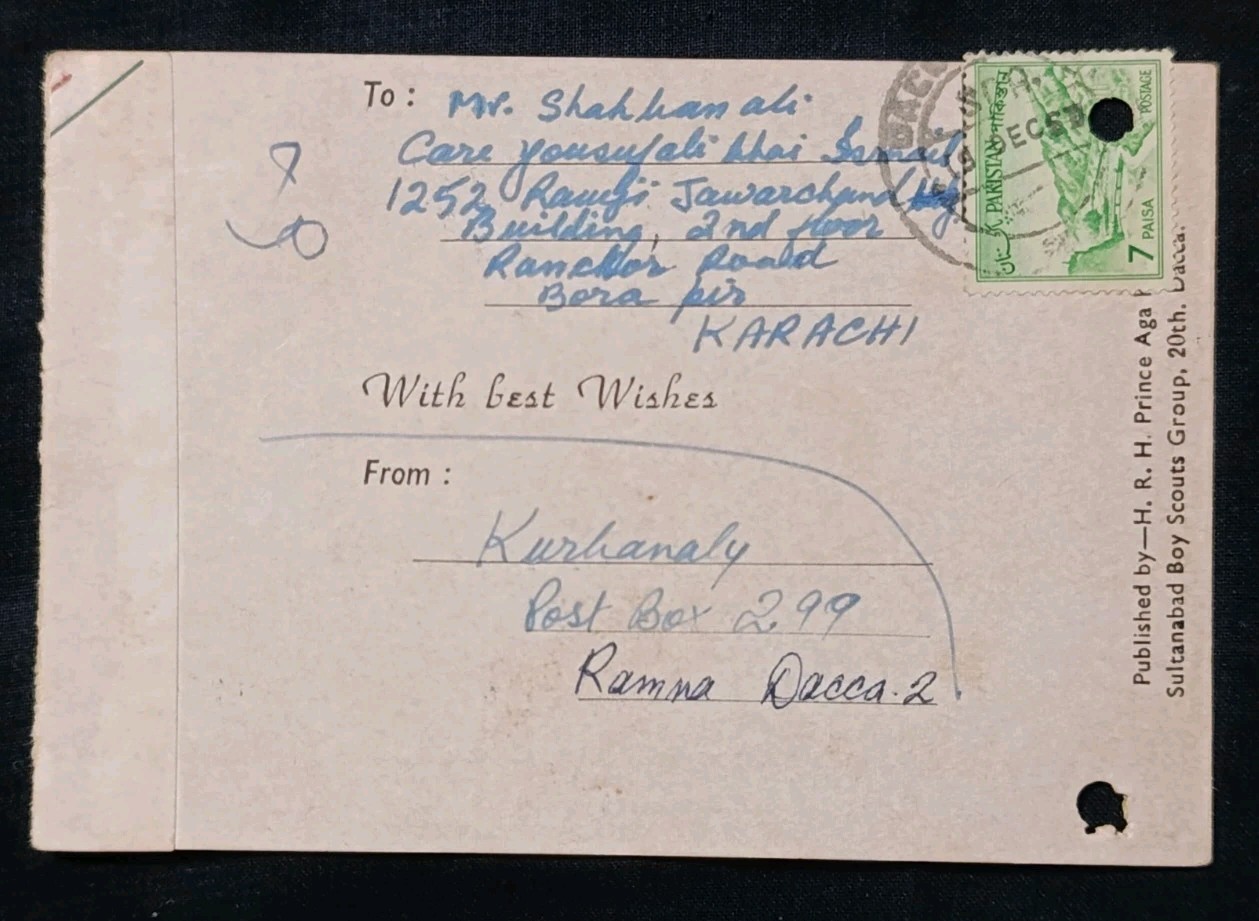 To :
Mr. Shahhan ali
Care yousufali bhai Ismail
1252 Ramji Jawarchand
Building, 2nd floor
Ranchor Roald
Bora pir
KARACHI
With best Wishes
From :
Kurbanaly
Post Box 299
Ramna Dacca-2
PAKISTAN পাকিস্তান
پاکستان
POSTAGE
7 PAISA
DEC
Published by—H. R. H. Prince Aga
Sultanabad Boy Scouts Group, 20th. Dacca.